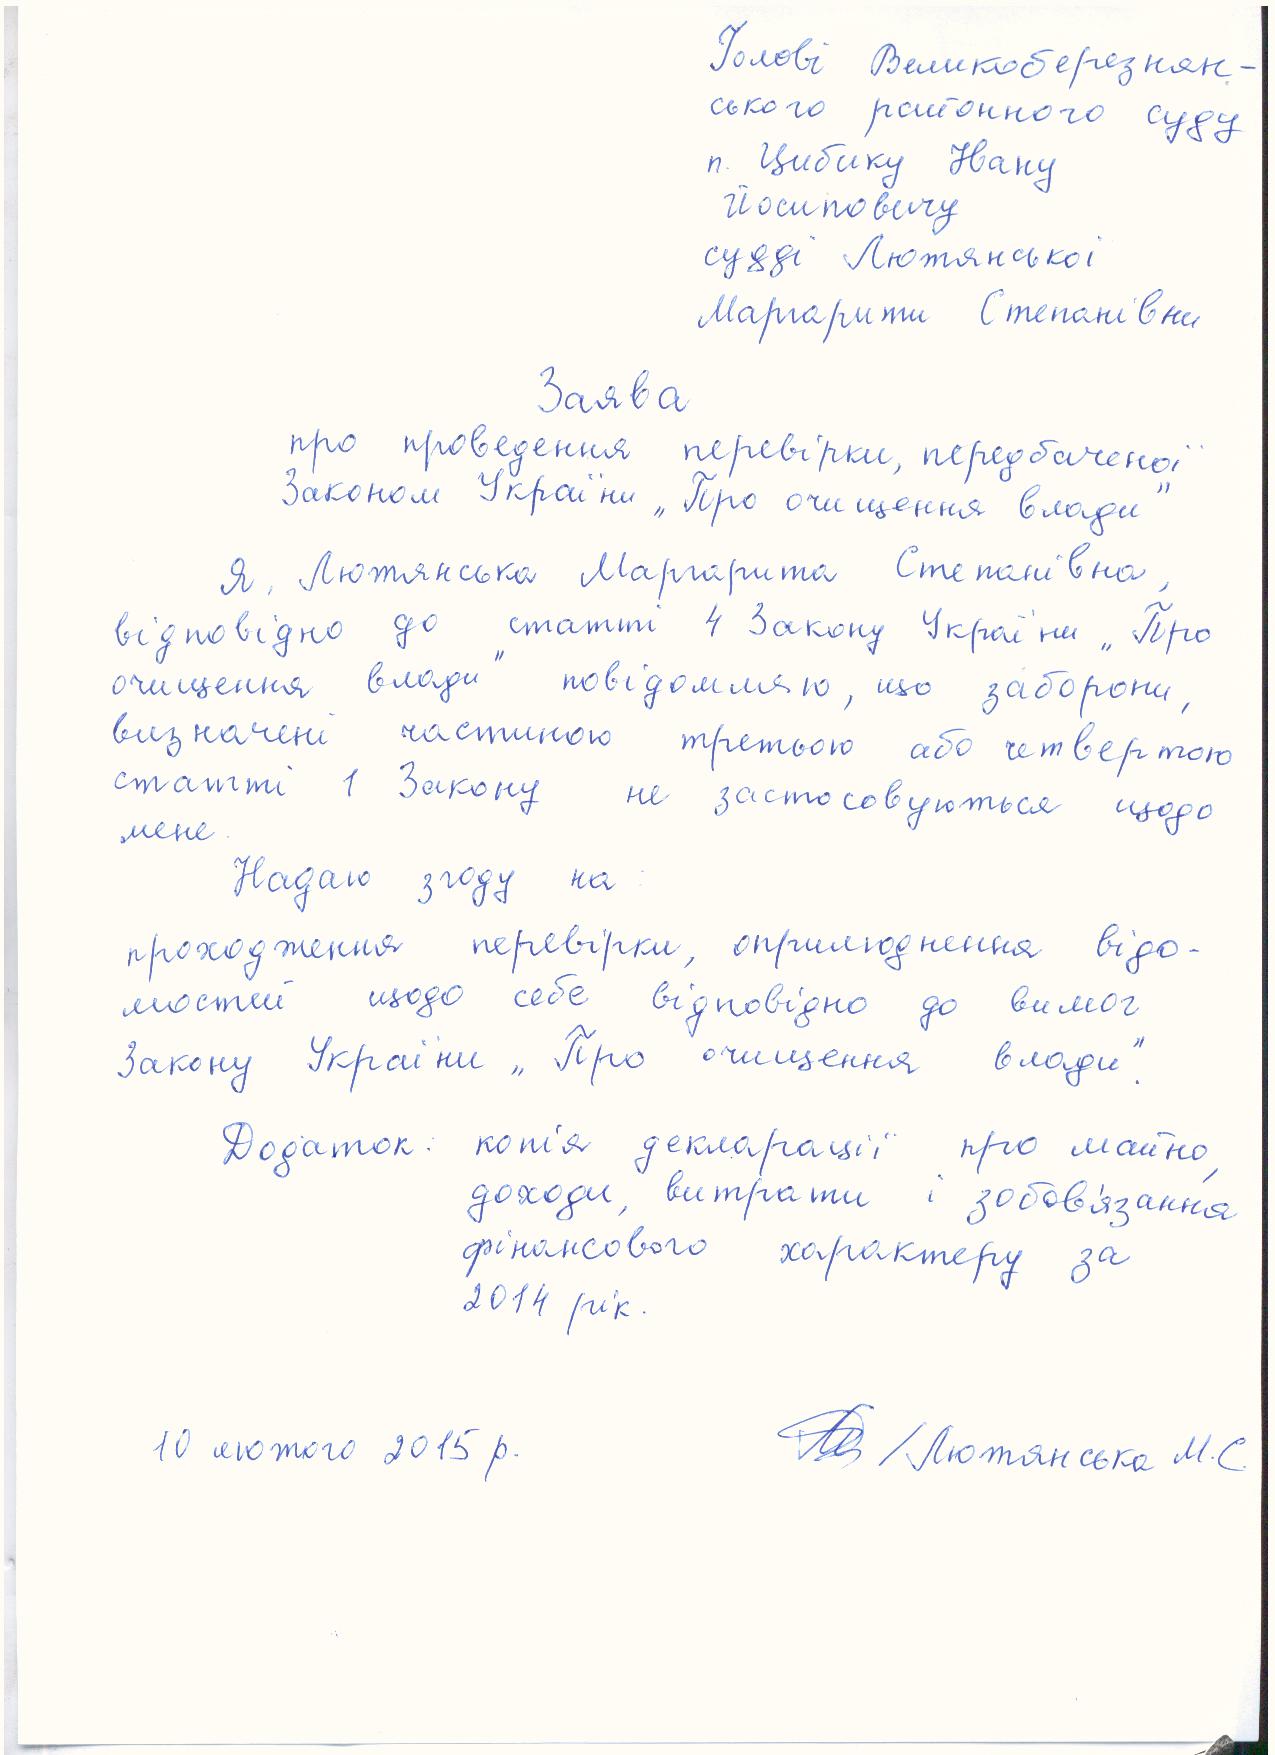 Голові Великоберезнян-
ського районного суду
п. Цибику Івану
Йосиповичу
судді Лютянської
Маргарити Степанівни
Заява
про проведення перевірки, передбаченої
Законом України „Про очищення влади"
Я, Лютянська Маргарита Степанівна,
відповідно до статті 4 Закону України „Про
очищення влади" повідомляю, що заборони,
визначені частиною третьою або четвертою
статті 1 Закону не застосовуються щодо
мене.
Надаю згоду на:
проходження перевірки, оприлюднення відо-
мостей щодо себе відповідно до вимог
Закону України „Про очищення влади".
Додаток: копія декларації про майно,
доходи, витрати і зобов'язання
фінансового характеру за
2014 рік.
10 лютого 2015 р. /Лютянська М.С.